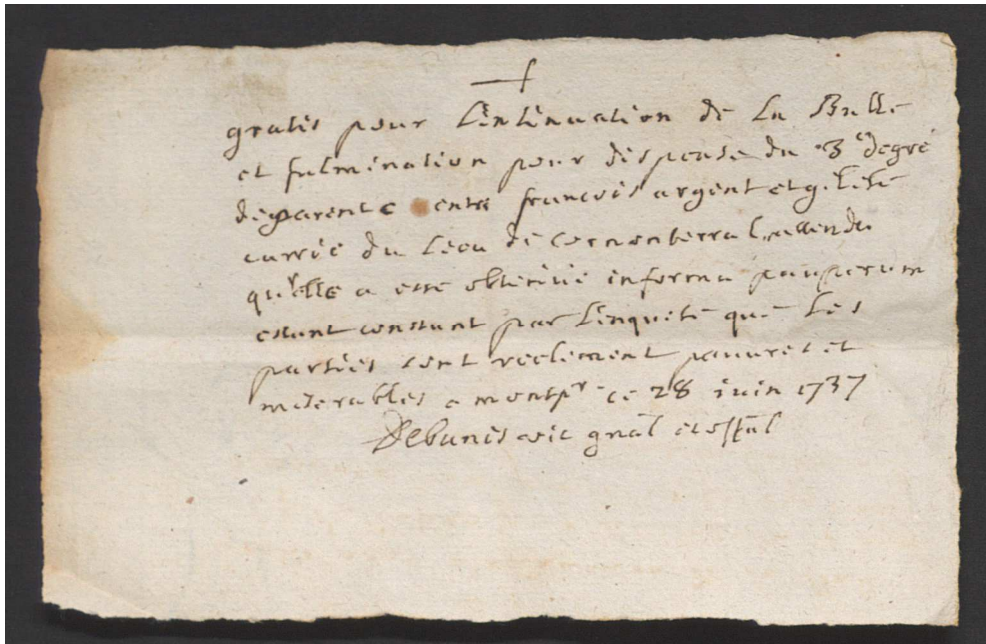 gratis pour Linsinuation de La Bulle
et fulmination pour dispense du 3e degré
de parente entre francois argent et
carrie du Lieu de Cornonterral, attendu
qu'elle a esté obtenüe in forma pauperum
estant constant par Lenquete que Les
parties sont reelement pauvres et
miserables a montpr ce 28 juin 1737
vic gnâl et offâl